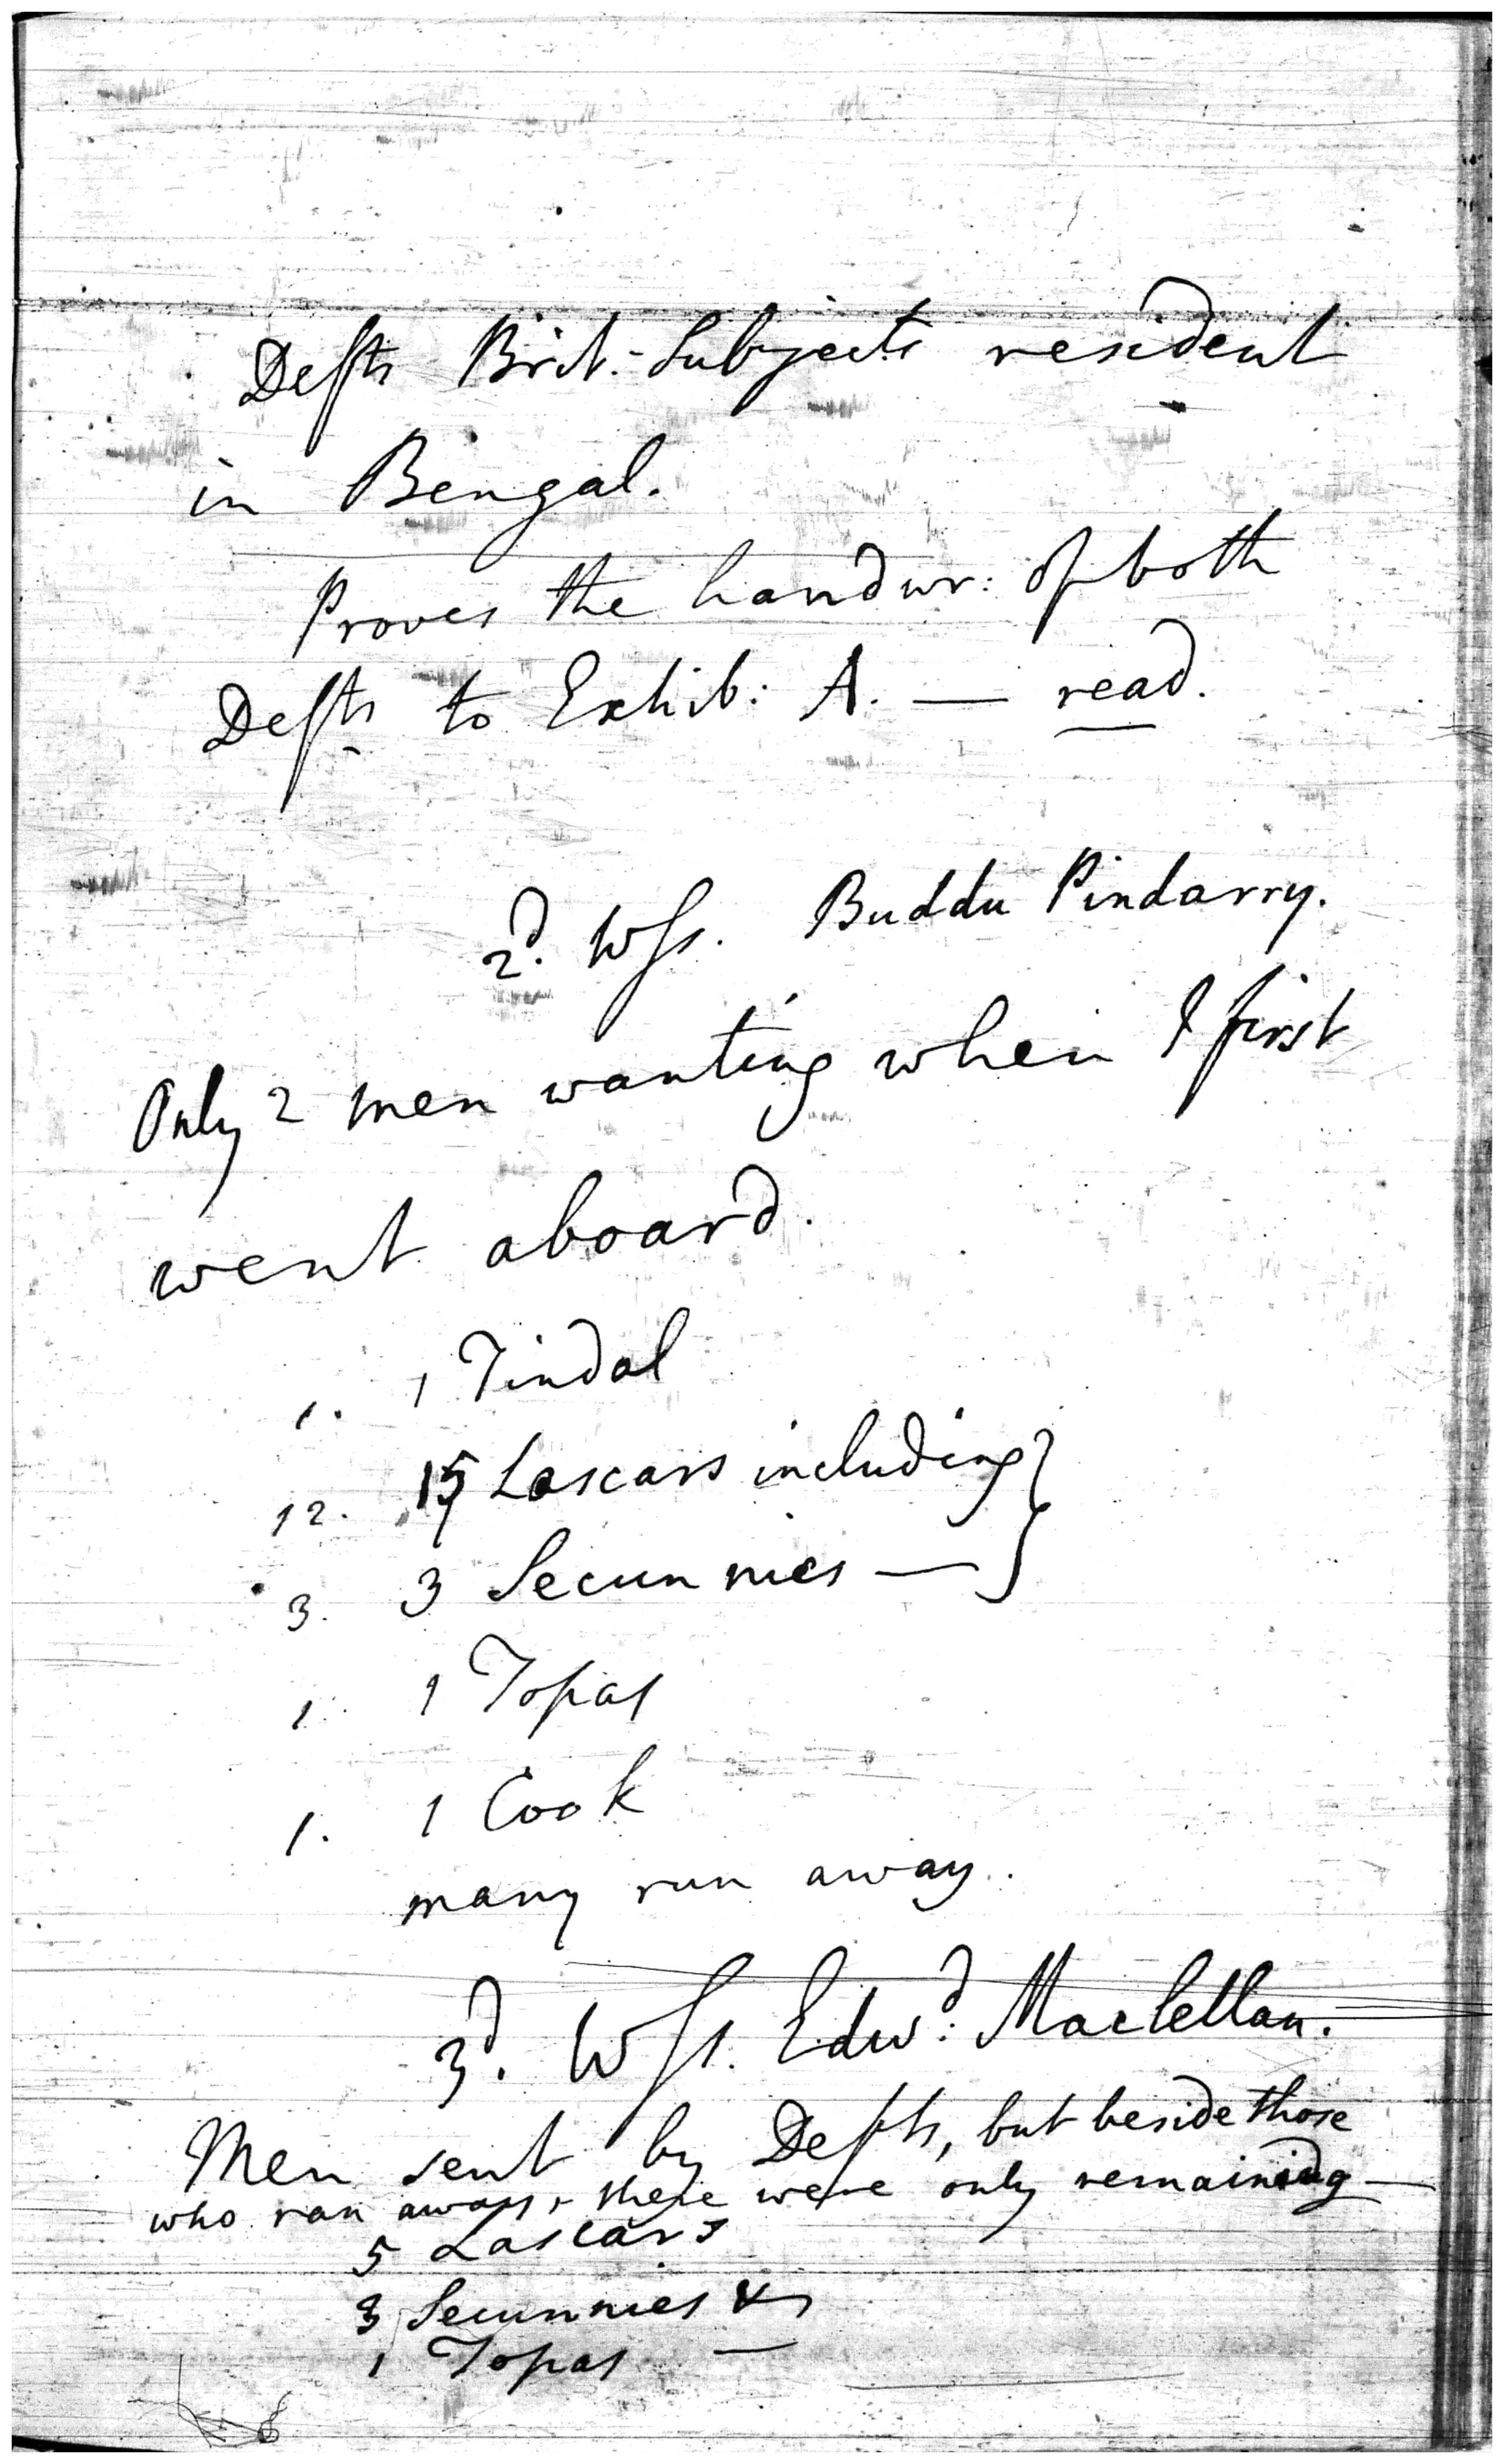 Defts Brit: Subjects resident
in Bengal.
Proves the handwr: of both
Defts to Exhib: A. — read.
2d. Wss. Buddu Pindarry.
Only 2 men wanting when I first
went aboard.
1. 1 Tindal
12. 15 Lascars including }
3. 3 Secunnies — }
1. 1 Topas
1. 1 Cook
many run away.
3d. Wss. Edwd: Maclellan.
Men sent by Defts, but beside those
who ran away, there were only remaining —
5 Lascars
3 Secunnies &
1 Topas —